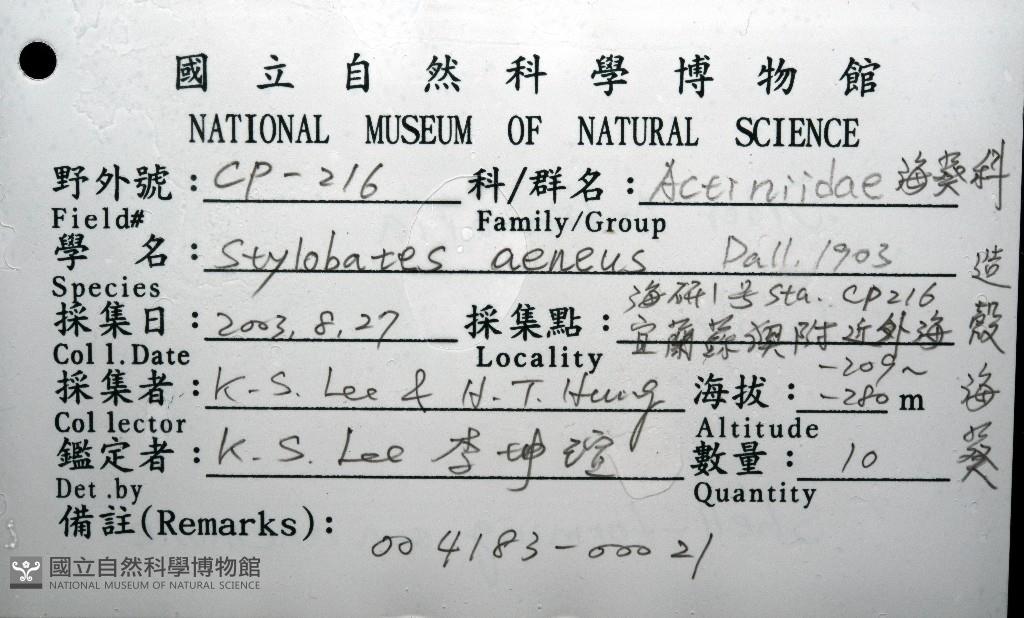 國立自然科學博物館
NATIONAL MUSEUM OF NATURAL SCIENCE
野外號：CP-216 科/群名：Actiniidae 海葵科
Field# Family/Group
學名：Stylobates aeneus Dall, 1903 造殼海葵
Species
海研1号 Sta. CP216
採集日：2003, 8, 27 採集點：宜蘭蘇澳附近外海
Coll.Date Locality
採集者：K-S. Lee & H-T. Hung 海拔：-209~-280 m
Collector Altitude
鑑定者：K.S. Lee 李坤瑄 數量：10
Det.by Quantity
備註(Remarks)：
004183-00021
國立自然科學博物館
NATIONAL MUSEUM OF NATURAL SCIENCE